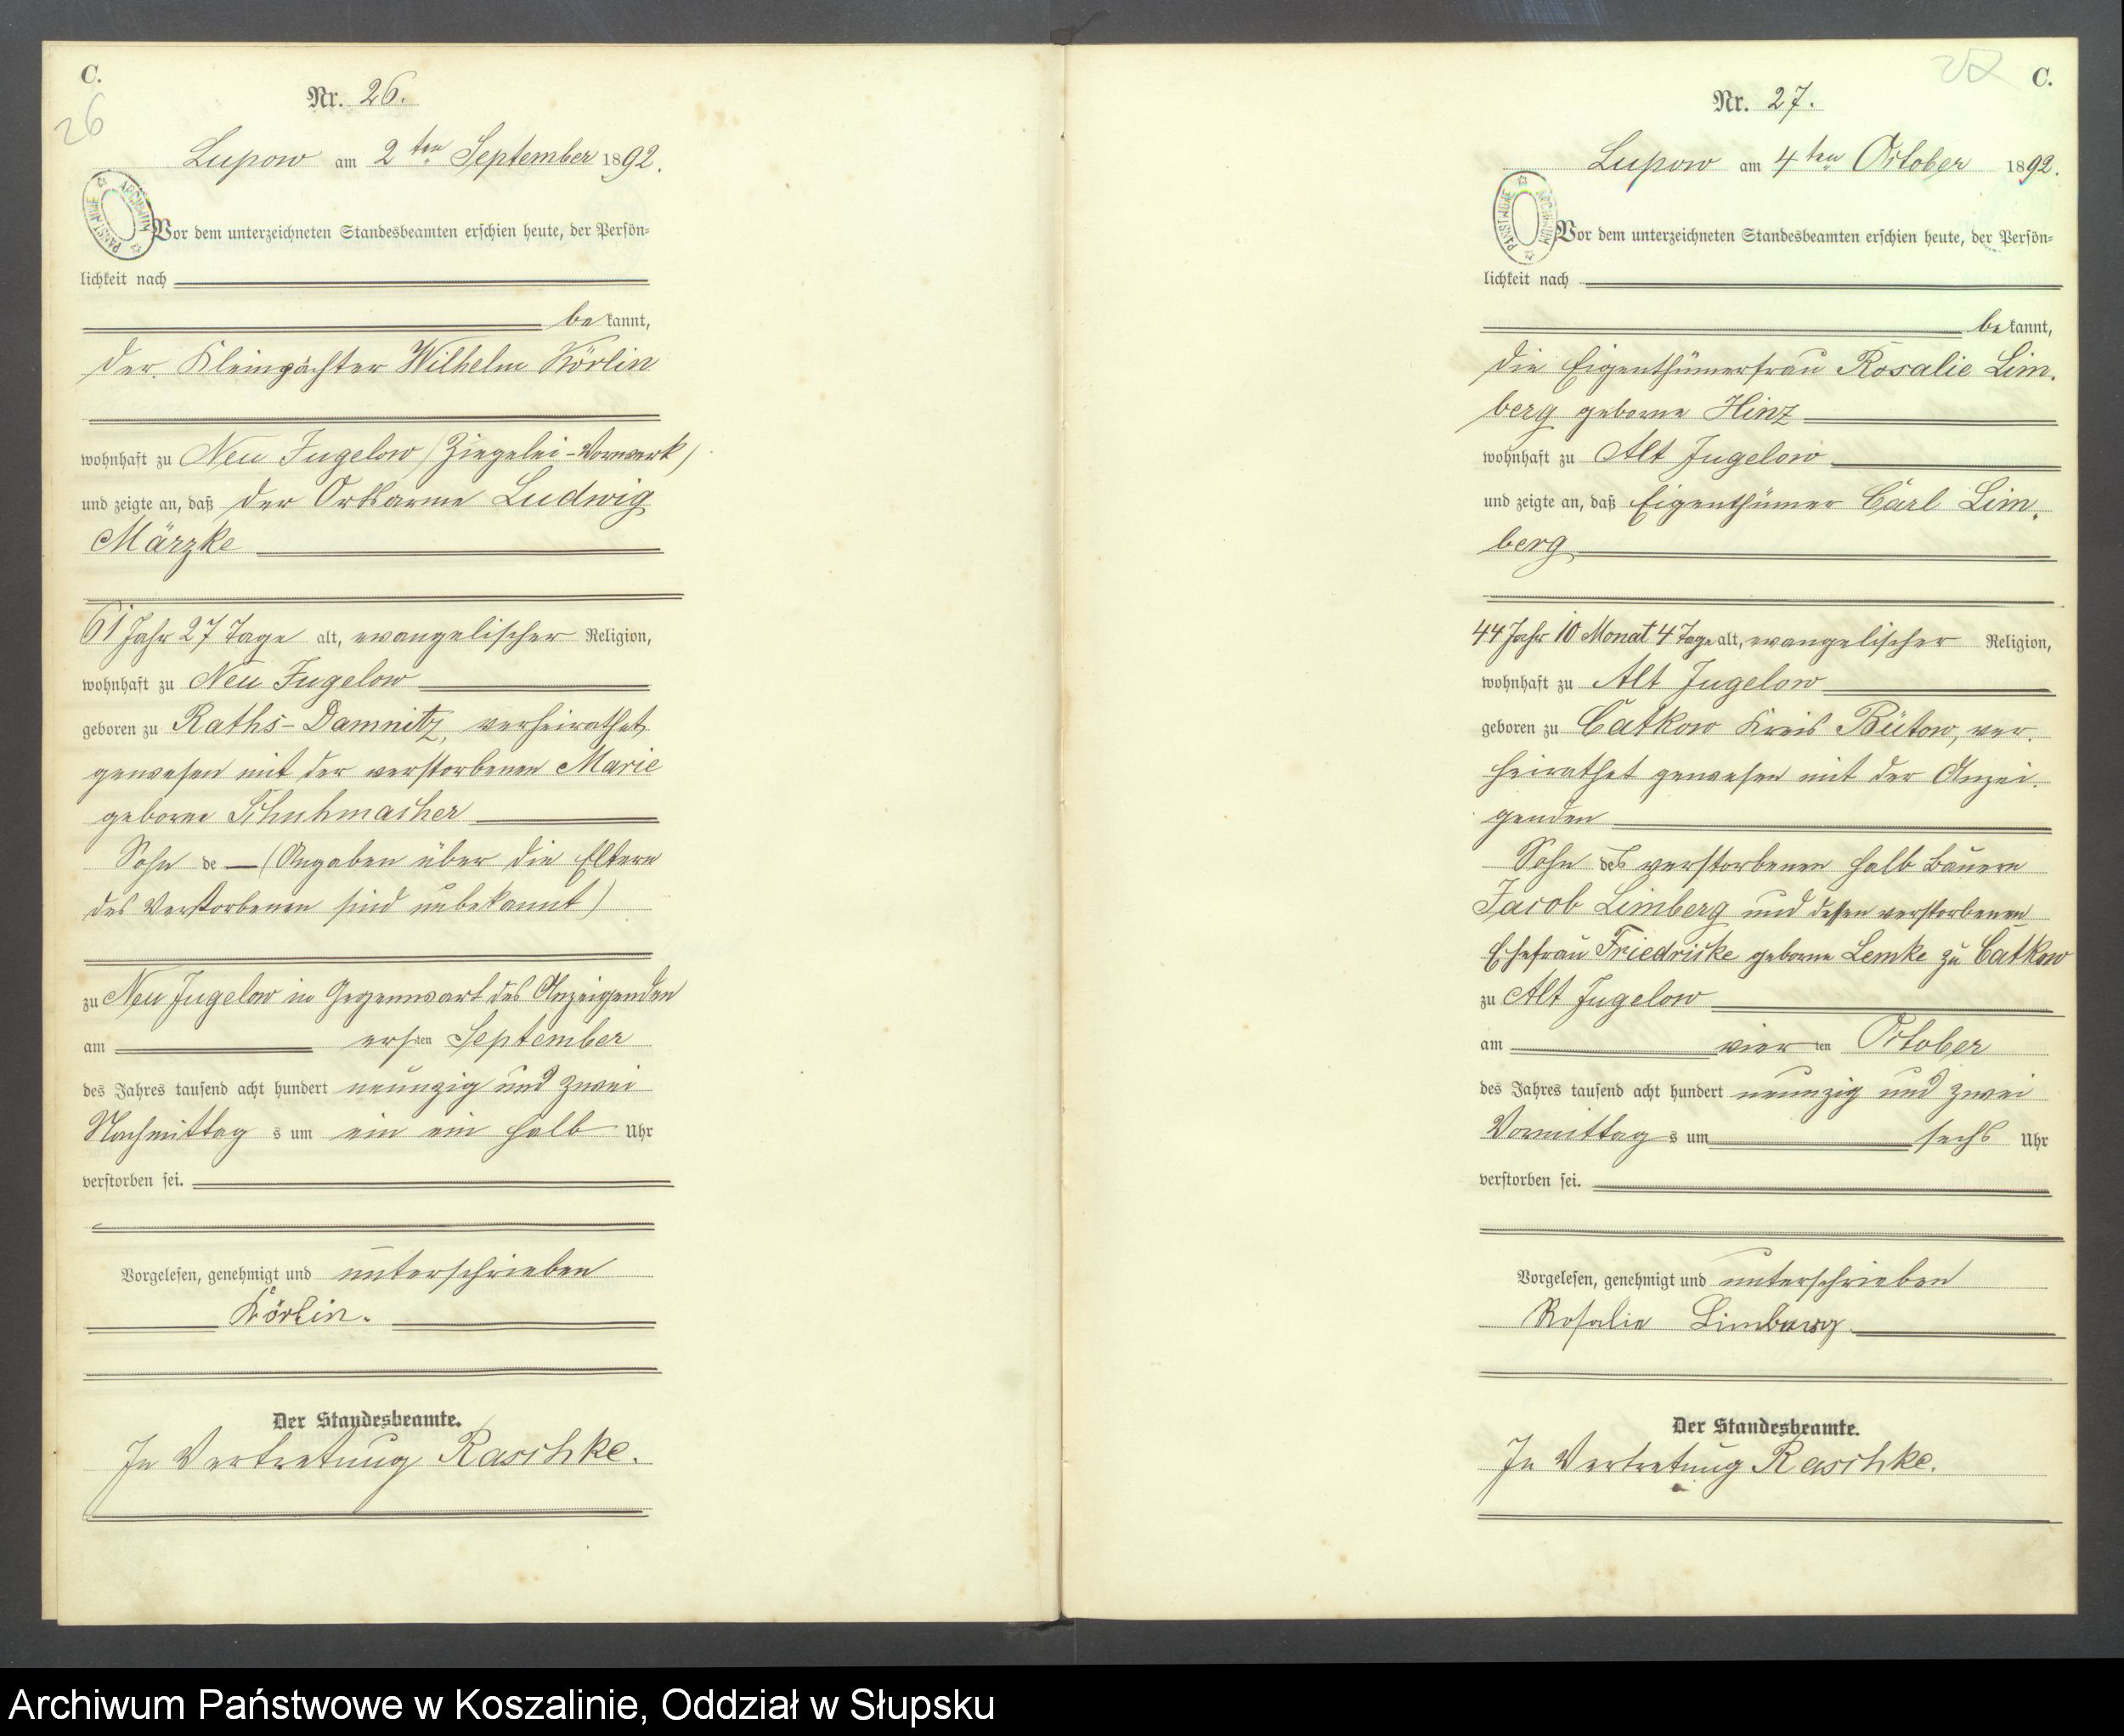 C.
26
Nr. 26.
Lupow am 2ten September 1892.
ARCHIWUM PAŃSTWOWE
Vor dem unterzeichneten Standesbeamten erschien heute, der Persön=
lichkeit nach
bekannt,
der Kleinpächter Wilhelm Körlin
wohnhaft zu Neu Jugelow (Ziegelei-Vorwerk)
und zeigte an, daß der Ortsarme Ludwig
Märzke
61 Jahr 27 Tage alt, evangelischer Religion,
wohnhaft zu Neu Jugelow
geboren zu Raths-Damnitz, verheirathet
gewesen mit der verstorbenen Marie
geborne Schuhmacher
Sohn de — (Angaben über die Eltern
des Verstorbenen sind unbekannt)
zu Neu Jugelow in Gegenwart des Anzeigenden
am ersten September
des Jahres tausend acht hundert neunzig und zwei
Nachmittags um ein ein halb Uhr
verstorben sei.
Vorgelesen, genehmigt und unterschrieben
Körlin.
Der Standesbeamte.
In Vertretung Raschke.
27
C.
Nr. 27.
Lupow am 4ten October 1892.
ARCHIWUM PAŃSTWOWE
Vor dem unterzeichneten Standesbeamten erschien heute, der Persön=
lichkeit nach
bekannt,
die Eigenthümerfrau Rosalie Lim.
berg geborne Hinz
wohnhaft zu Alt Jugelow
und zeigte an, daß Eigenthümer Carl Lim.
berg
44 Jahr 10 Monat 4 Tage alt, evangelischer Religion,
wohnhaft zu Alt Jugelow
geboren zu Catkow Kreis Bütow, ver.
heirathet gewesen mit der Anzei.
genden
Sohn des verstorbenen Halb Bauern
Jacob Limberg und dessen verstorbenen
Ehefrau Friedricke geborne Lemke zu Catkow
zu Alt Jugelow
am vierten October
des Jahres tausend acht hundert neunzig und zwei
Vormittags um sechs Uhr
verstorben sei.
Vorgelesen, genehmigt und unterschrieben
Rosalie Limberg
Der Standesbeamte.
In Vertretung Raschke.
Archiwum Państwowe w Koszalinie, Oddział w Słupsku